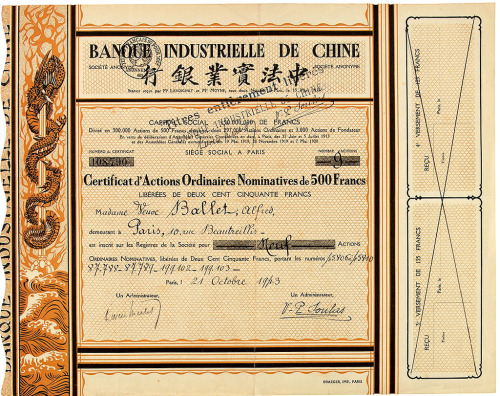 BANQUE INDUSTRIELLE DE CHINE
SOCIÉTÉ ANONYME
SOCIÉTÉ ANONYME
行銀業實法中
Titres entièrement libérés
BANQUE INDUSTRIELLE DE CHINE
CAPITAL SOCIAL : 150.000.000 DE FRANCS
Divisé en 300.000 Actions de 500 Francs, dont 297.000 Actions Ordinaires et 3.000 Actions de Fondateur
SIÈGE SOCIAL A PARIS
NUMÉRO du CERTIFICAT
NOMBRE D'ACTIONS
108730
9
Certificat d'Actions Ordinaires Nominatives de 500 Francs
LIBÉRÉES DE DEUX CENT CINQUANTE FRANCS
Madame Veuve Ballet, Alfred,
demeurant à Paris, 10, rue Beautreillis
est inscrit sur les Registres de la Société pour Neuf ACTIONS
ORDINAIRES NOMINATIVES, libérées de Deux Cent Cinquante Francs, portant les numéros
87.788-87.789 199.102-199.103
Paris, l 21 Octobre 1943
Un Administrateur,
Un Administrateur,
DRAEGER, IMP. PARIS
BANQUE INDUSTRIELLE DE CHINE
4e VERSEMENT DE 125 FRANCS
REÇU
Paris, le
3e VERSEMENT DE 125 FRANCS
REÇU
Paris, le